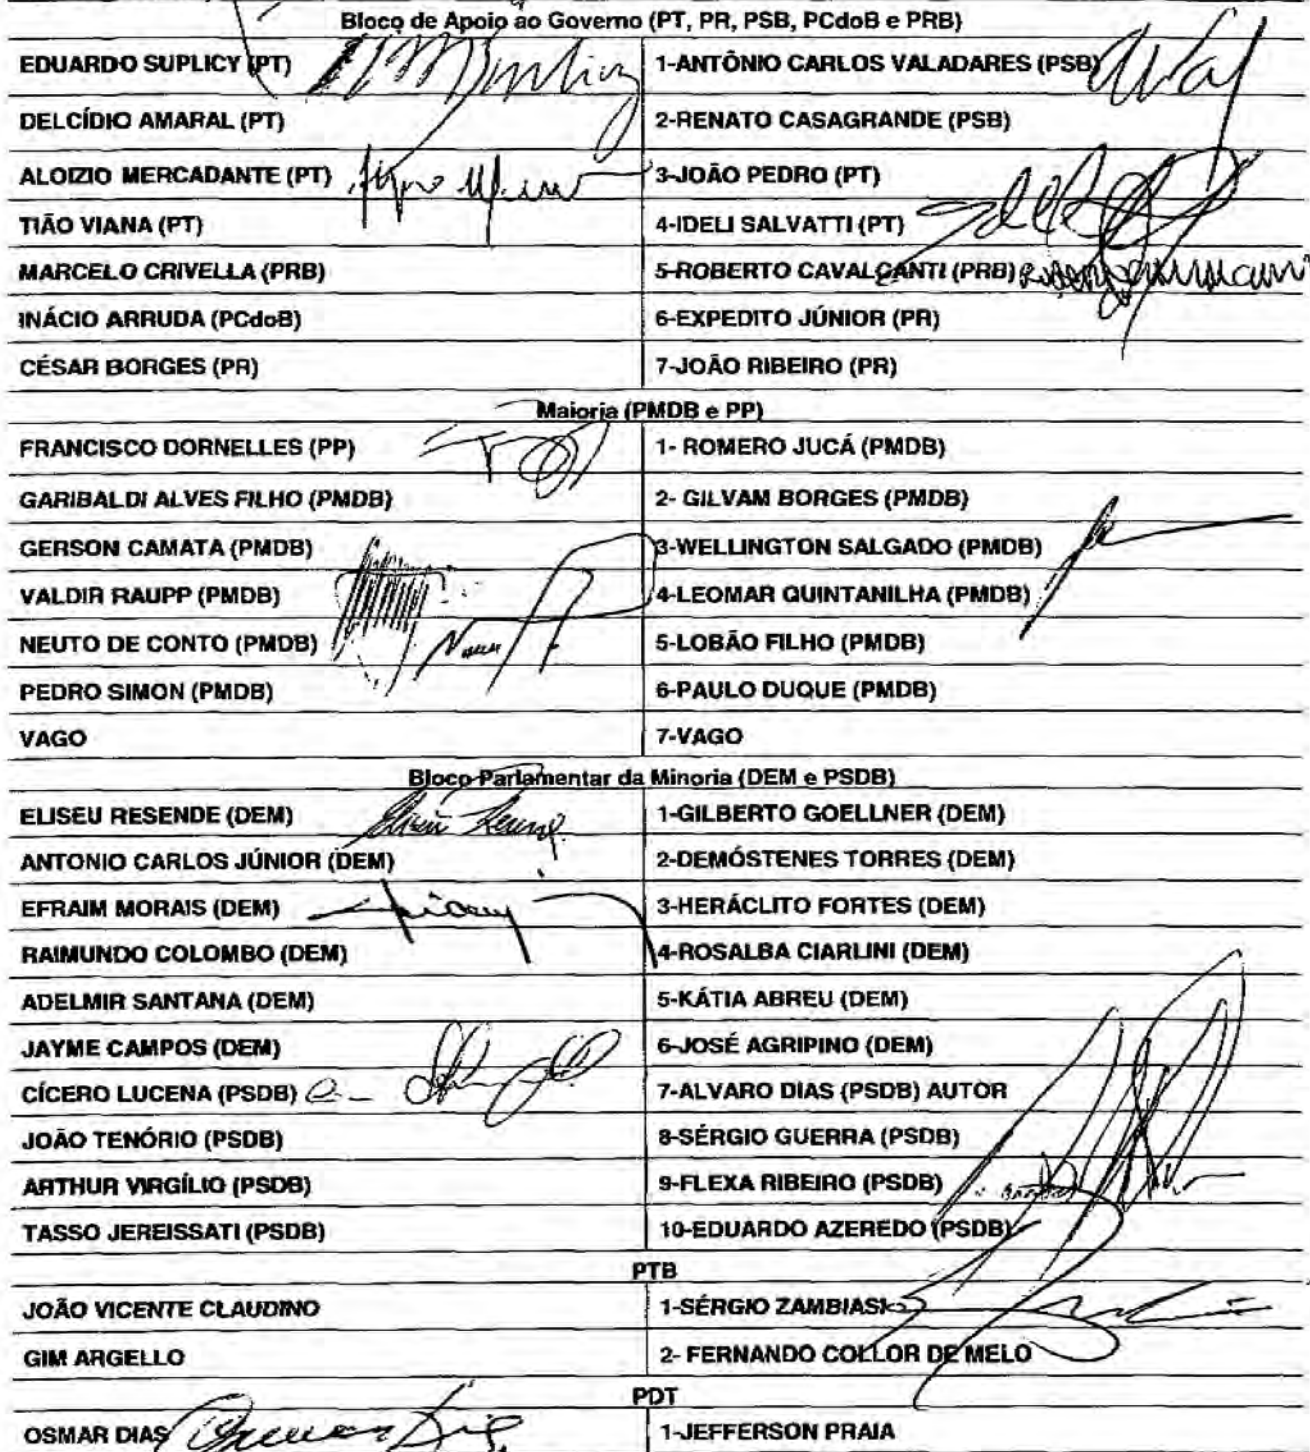 Bloco de Apoio ao Governo (PT, PR, PSB, PCdoB e PRB)
EDUARDO SUPLICY (PT) 1-ANTÔNIO CARLOS VALADARES (PSB)
DELCÍDIO AMARAL (PT) 2-RENATO CASAGRANDE (PSB)
ALOIZIO MERCADANTE (PT) 3-JOÃO PEDRO (PT)
TIÃO VIANA (PT) 4-IDELI SALVATTI (PT)
MARCELO CRIVELLA (PRB) 5-ROBERTO CAVALCANTI (PRB)
INÁCIO ARRUDA (PCdoB) 6-EXPEDITO JÚNIOR (PR)
CÉSAR BORGES (PR) 7-JOÃO RIBEIRO (PR)
Maioria (PMDB e PP)
FRANCISCO DORNELLES (PP) 1- ROMERO JUCÁ (PMDB)
GARIBALDI ALVES FILHO (PMDB) 2- GILVAM BORGES (PMDB)
GERSON CAMATA (PMDB) 3-WELLINGTON SALGADO (PMDB)
VALDIR RAUPP (PMDB) 4-LEOMAR QUINTANILHA (PMDB)
NEUTO DE CONTO (PMDB) 5-LOBÃO FILHO (PMDB)
PEDRO SIMON (PMDB) 6-PAULO DUQUE (PMDB)
VAGO 7-VAGO
Bloco Parlamentar da Minoria (DEM e PSDB)
ELISEU RESENDE (DEM) 1-GILBERTO GOELLNER (DEM)
ANTONIO CARLOS JÚNIOR (DEM) 2-DEMÓSTENES TORRES (DEM)
EFRAIM MORAIS (DEM) 3-HERÁCLITO FORTES (DEM)
RAIMUNDO COLOMBO (DEM) 4-ROSALBA CIARLINI (DEM)
ADELMIR SANTANA (DEM) 5-KÁTIA ABREU (DEM)
JAYME CAMPOS (DEM) 6-JOSÉ AGRIPINO (DEM)
CÍCERO LUCENA (PSDB) 7-ALVARO DIAS (PSDB) AUTOR
JOÃO TENÓRIO (PSDB) 8-SÉRGIO GUERRA (PSDB)
ARTHUR VIRGÍLIO (PSDB) 9-FLEXA RIBEIRO (PSDB)
TASSO JEREISSATI (PSDB) 10-EDUARDO AZEREDO (PSDB)
PTB
JOÃO VICENTE CLAUDINO 1-SÉRGIO ZAMBIASI
GIM ARGELLO 2- FERNANDO COLLOR DE MELO
PDT
OSMAR DIAS Osmar Dias 1-JEFFERSON PRAIA